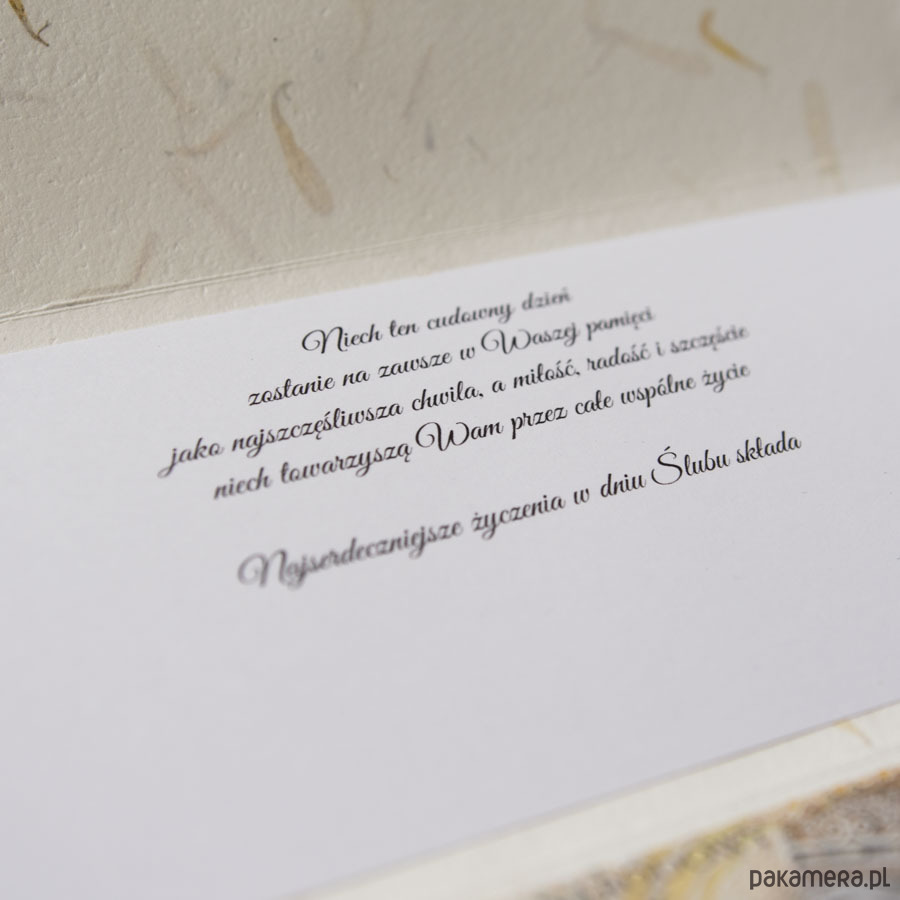 Niech ten cudowny dzień
zostanie na zawsze w Waszej pamięci
jako najszczęśliwsza chwila, a miłość, radość i szczęście
niech towarzyszą Wam przez całe wspólne życie
Najserdeczniejsze życzenia w dniu Ślubu składa
pakamera.pl